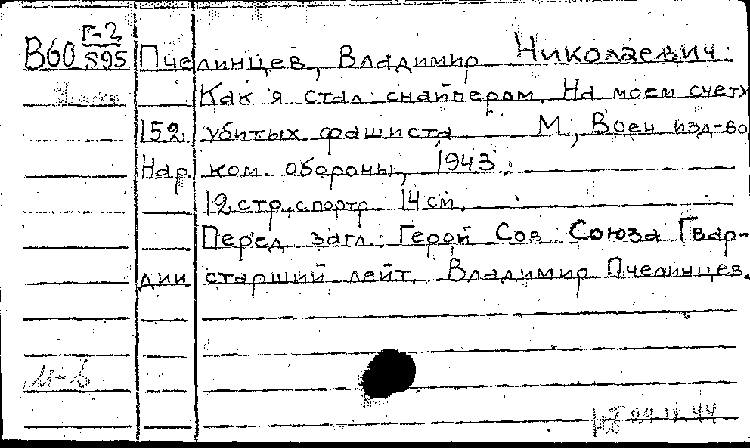 В60 Г-2
595 Пчелинцев, Владимир Николаевич.
Как я стал снайпером. На моем счету
152 убитых фашиста М, Воен изд-во
Нар. ком. обороны, 1943.
12 стр., с портр. 14 см.
Перед загл.: Герой Сов Союза Гвар-
дии старший лейт. Владимир Пчелинцев.